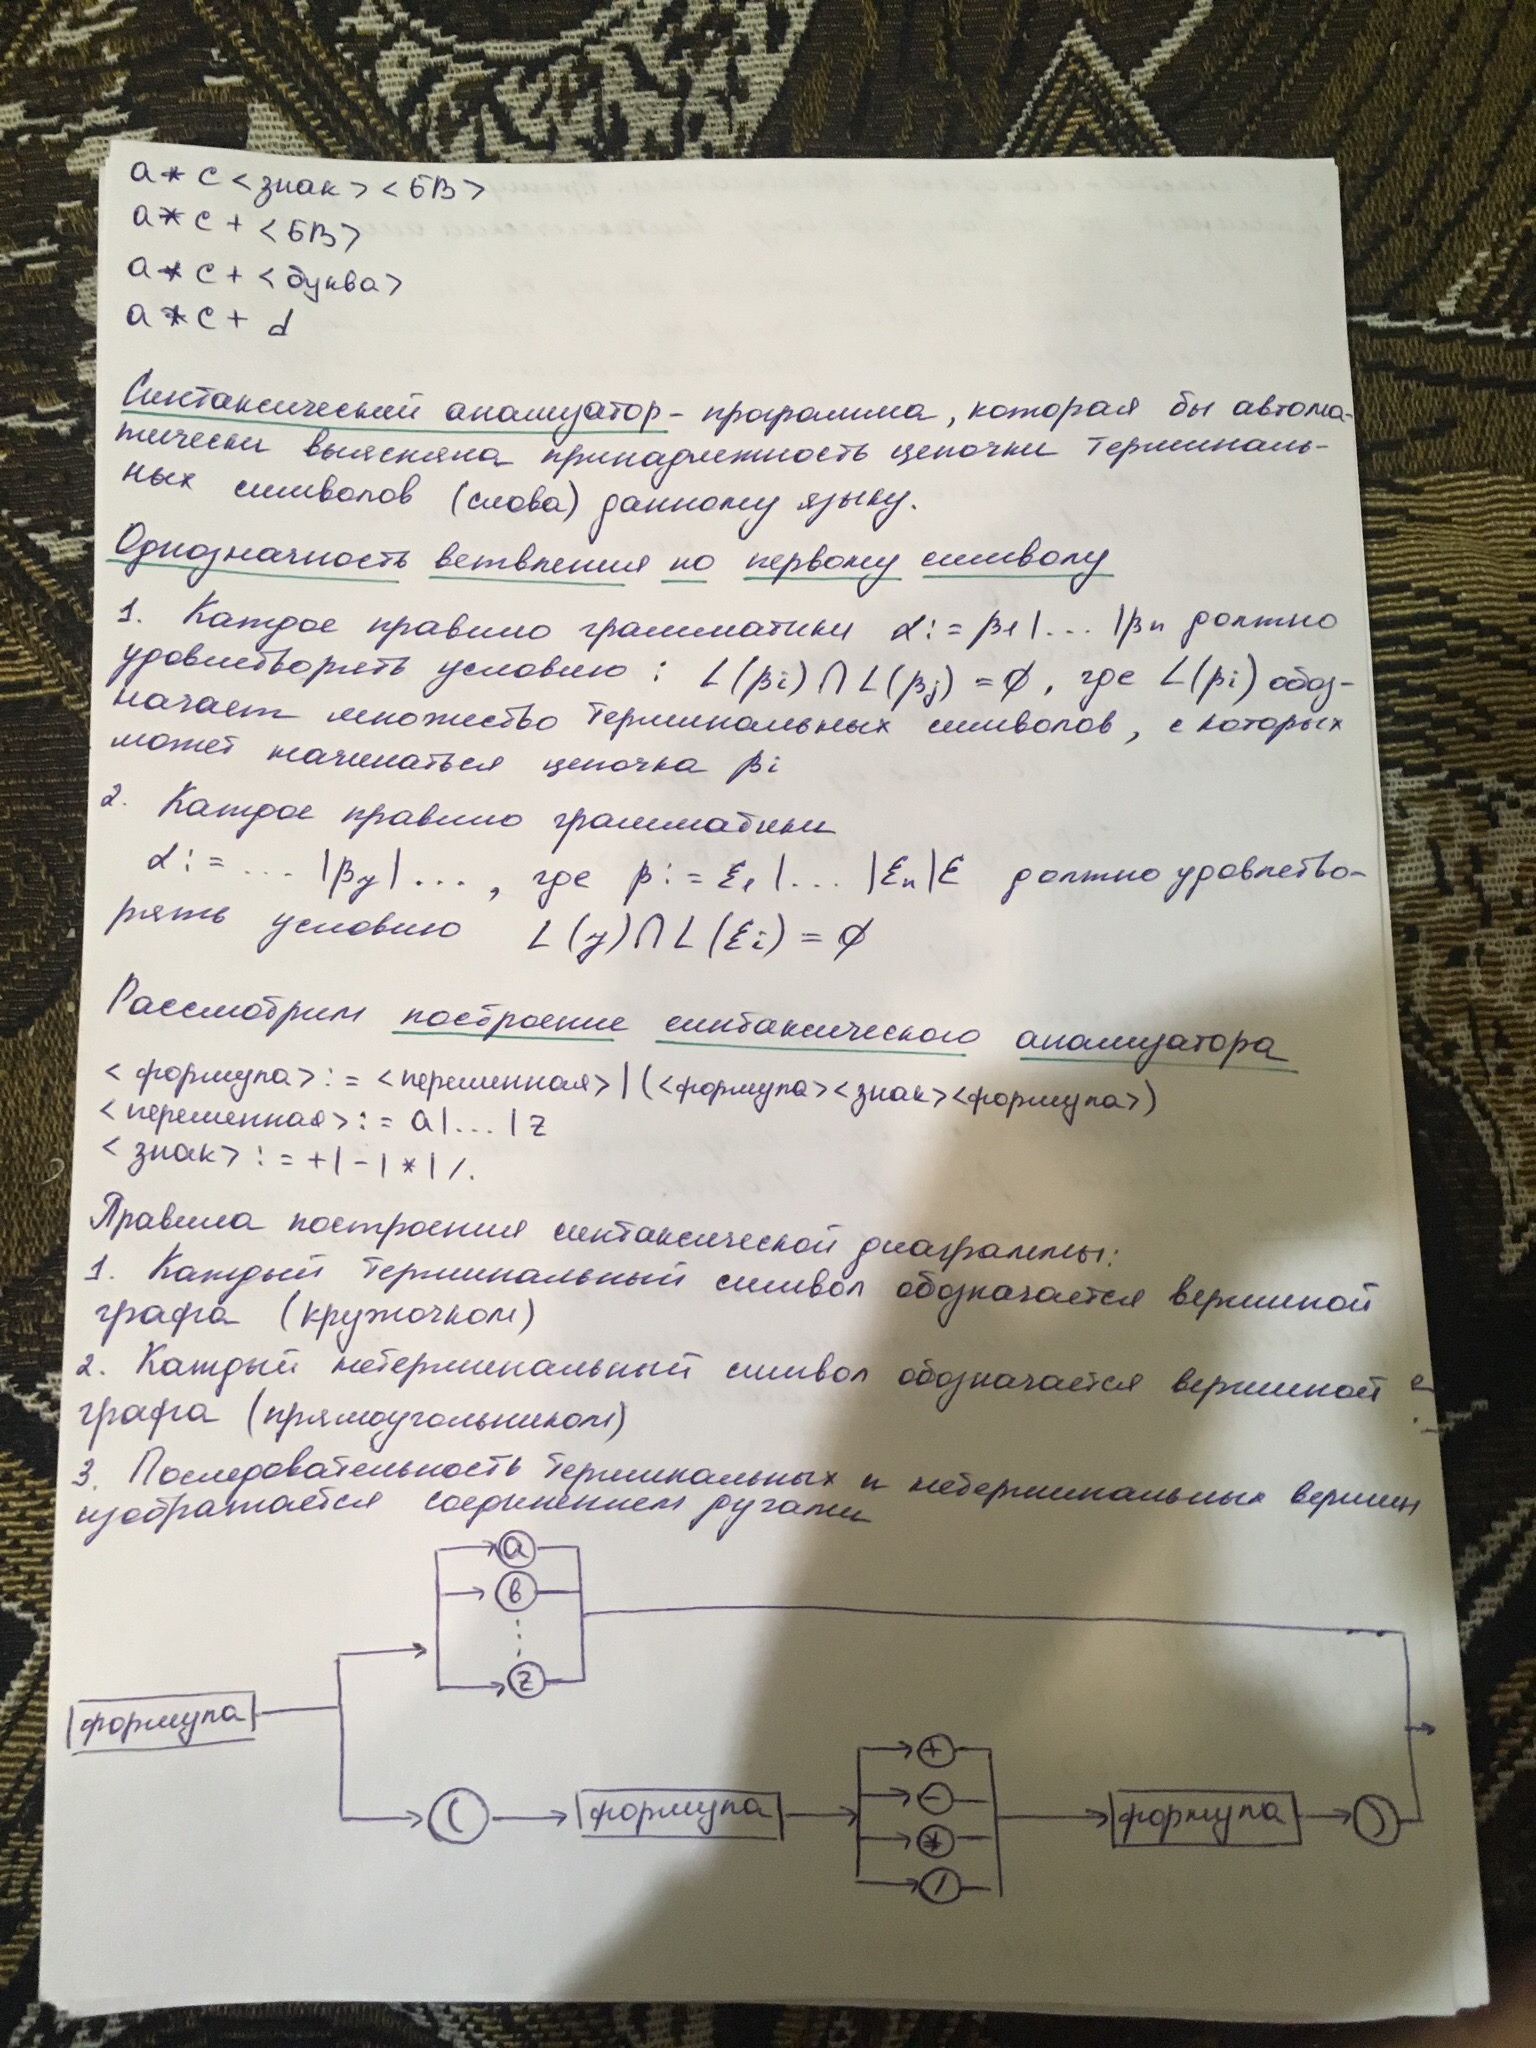 a*c<знак><БВ>
a*c+<БВ>
a*c+<буква>
a*c+d
Синтаксический анализатор - программа, которая бы автома-
тически выясняла принадлежность цепочки терминаль-
ных символов (слова) данному языку.
Однозначность ветвления по первому символу
1. Каждое правило грамматики α:=β1|...|βn должно
удовлетворять условию: L(βi)∩L(βj)=∅, где L(βi) обоз-
начает множество терминальных символов, с которых
может начинаться цепочка βi
2. Каждое правило грамматики
α:=...|βy|..., где β:=ξ1|...|ξn|ε должно удовлетво-
рять условию L(y)∩L(ξi)=∅
Рассмотрим построение синтаксического анализатора
<формула>:=<переменная>|(<формула><знак><формула>)
<переменная>:=a|...|z
<знак>:=+|-|*|/.
Правила построения синтаксической диаграммы:
1. Каждый терминальный символ обозначается вершиной
графа (кружочком)
2. Каждый нетерминальный символ обозначается вершиной
графа (прямоугольником)
3. Последовательность терминальных и нетерминальных вершин
изображается соединением дугами
a
в
z
формула
+
-
*
/
( формула формула )